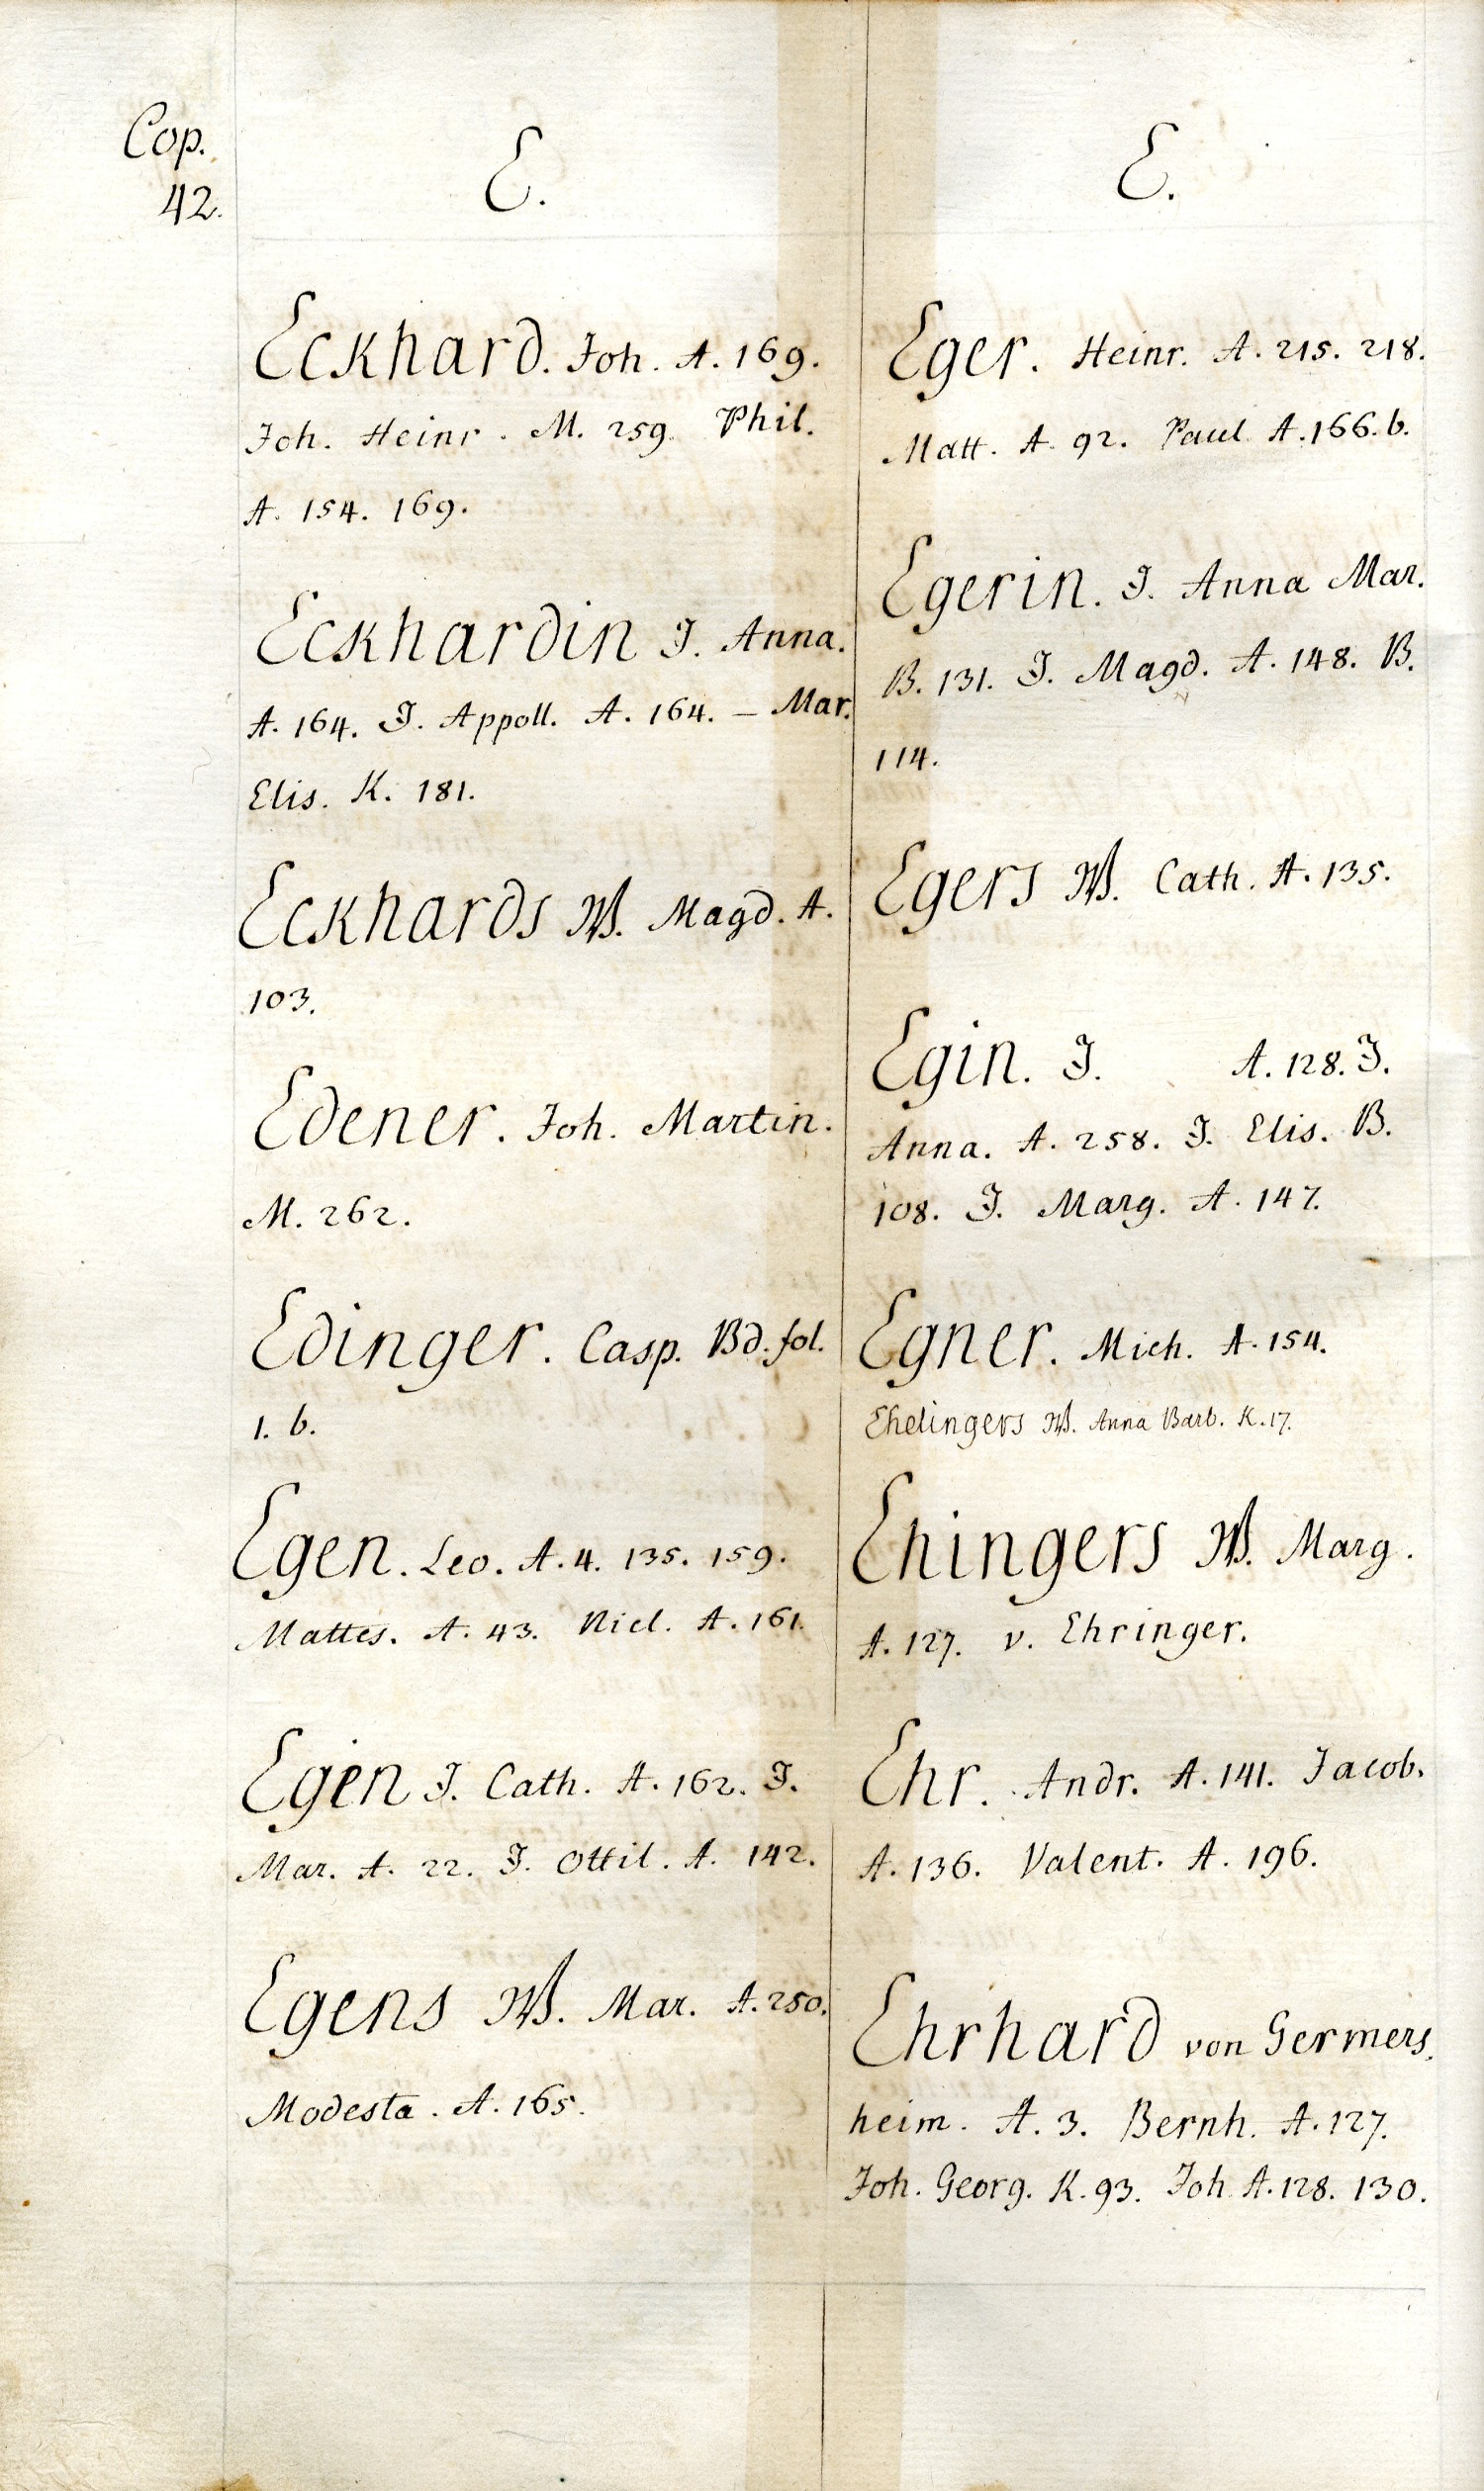 Cop.
42.
E.
Eckhard. Joh. A. 169.
Joh. Heinr. M. 259. Phil.
A. 154. 169.
Eckhardin J. Anna.
A. 164. J. Appoll. A. 164. – Mar.
Elis. K. 181.
Eckhards W. Magd. A.
103.
Edener. Joh. Martin.
M. 262.
Edinger. Casp. Bd. fol.
1. b.
Egen. Leo. A. 4. 135. 159.
Mattes. A. 43. Nicl. A. 161.
Egen J. Cath. A. 162. J.
Mar. A. 22. J. Ottil. A. 142.
Egens W. Mar. A. 250.
Modesta. A. 165.
E.
Eger. Heinr. A. 215. 218.
Matt. A. 92. Paul A. 166. b.
Egerin. J. Anna Mar.
B. 131. J. Magd. A. 148. B.
114.
Egers W. Cath. A. 135.
Egin. J. A. 128. J.
Anna. A. 258. J. Elis. B.
108. J. Marg. A. 147.
Egner. Mich. A. 154.
Ehelingers W. Anna Barb. K. 17.
Ehingers W. Marg.
A. 127. v. Ehringer.
Ehr. Andr. A. 141. Jacob.
A. 136. Valent. A. 196.
Ehrhard von Germers
heim. A. 3. Bernh. A. 127.
Joh. Georg. K. 93. Joh A. 128. 130.